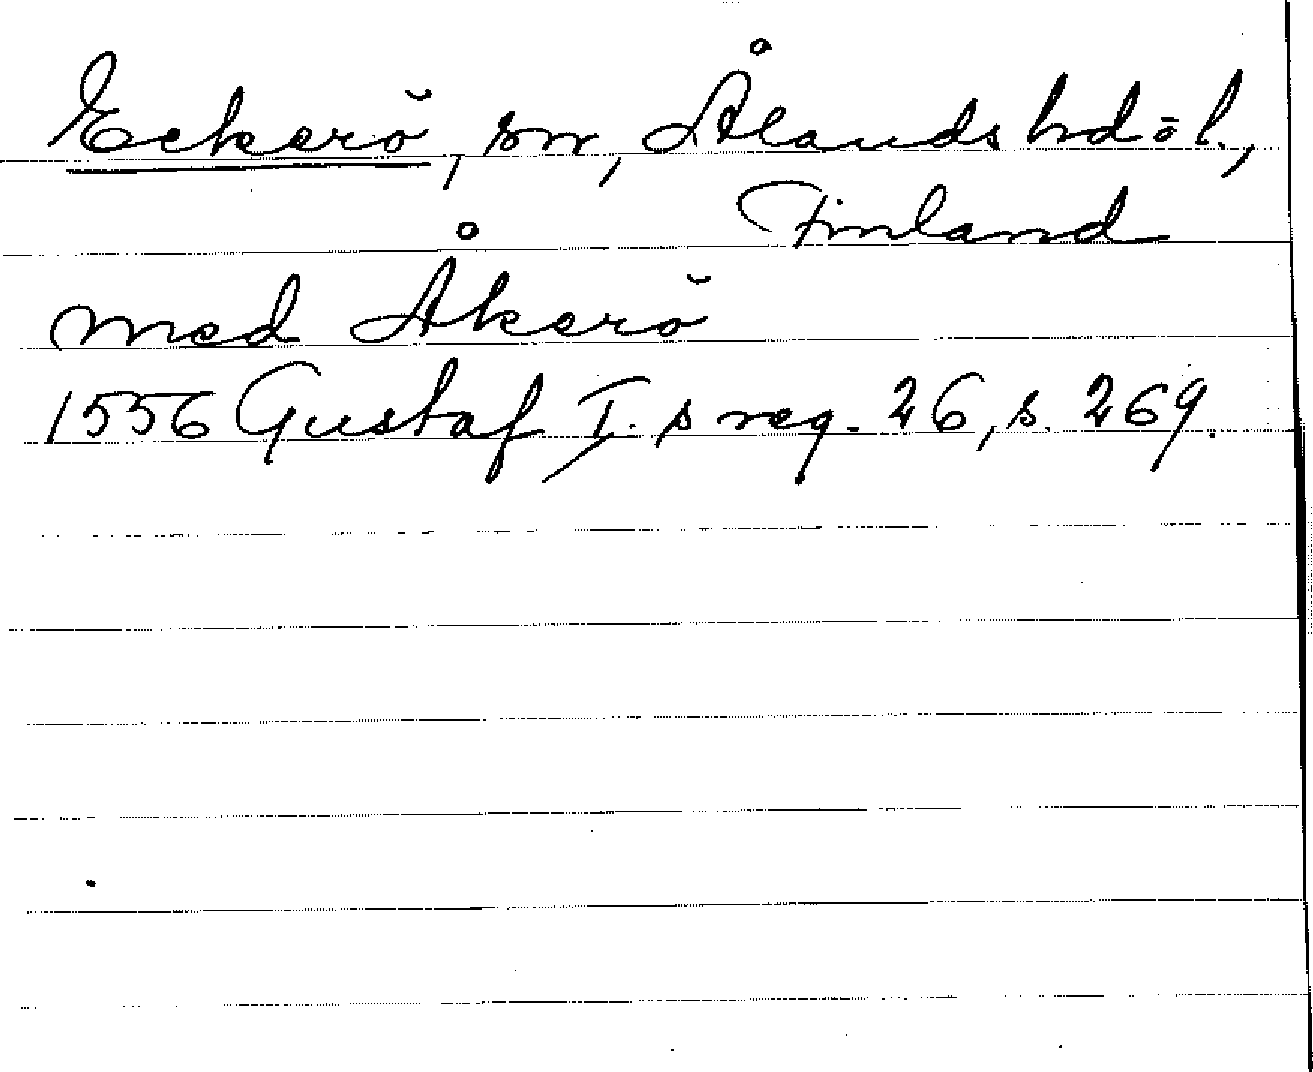 Eckerö, sn, Ålands hd o l.,
Finland
med Åkerö
1556 Gustaf I.s reg. 26, s. 269.